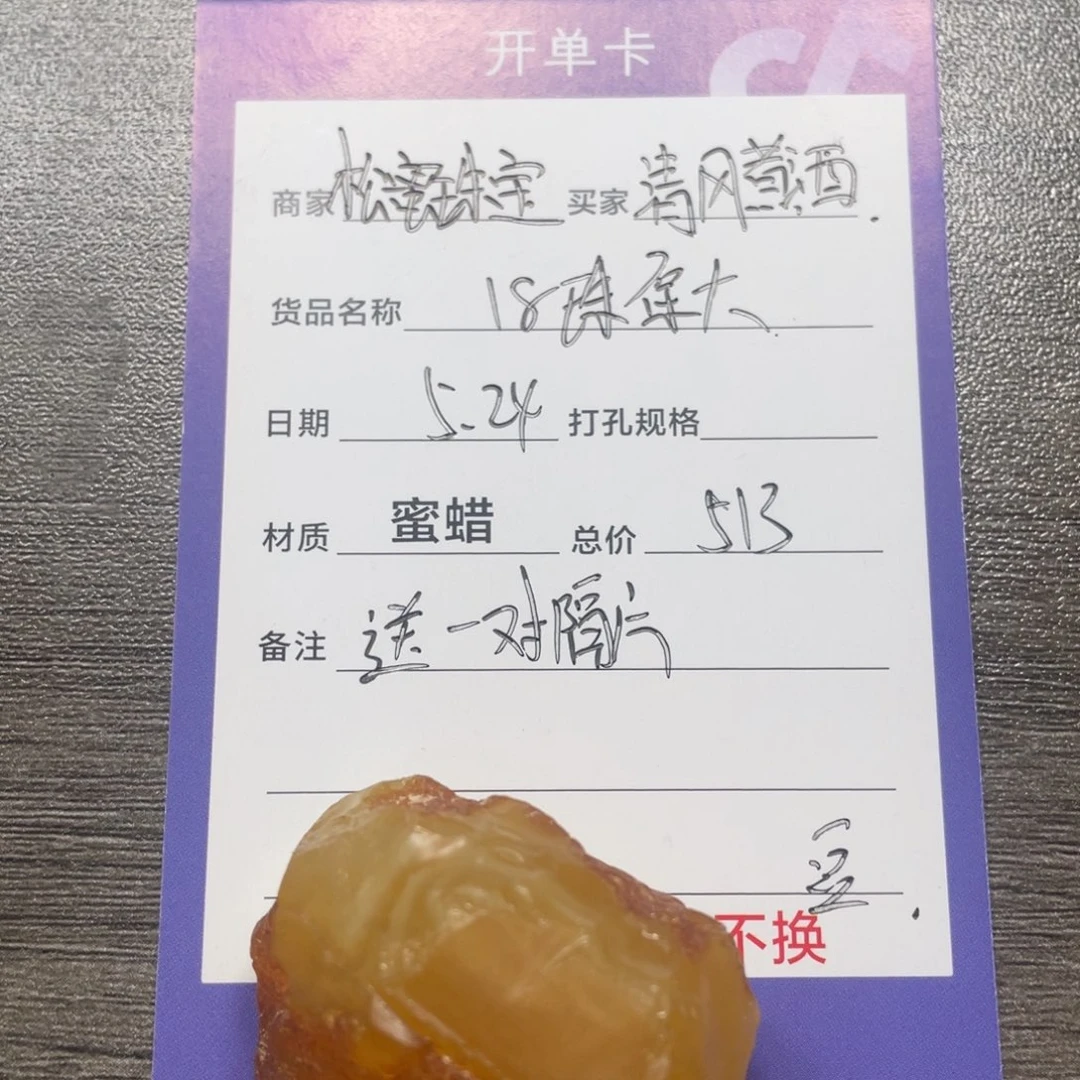 开单卡
商家 松蜜珠宝 买家 清风煮酒
货品名称 18珠保大
日期 5.24 打孔规格
材质 蜜蜡 总价 513
备注 送一对隔片
豆
不换